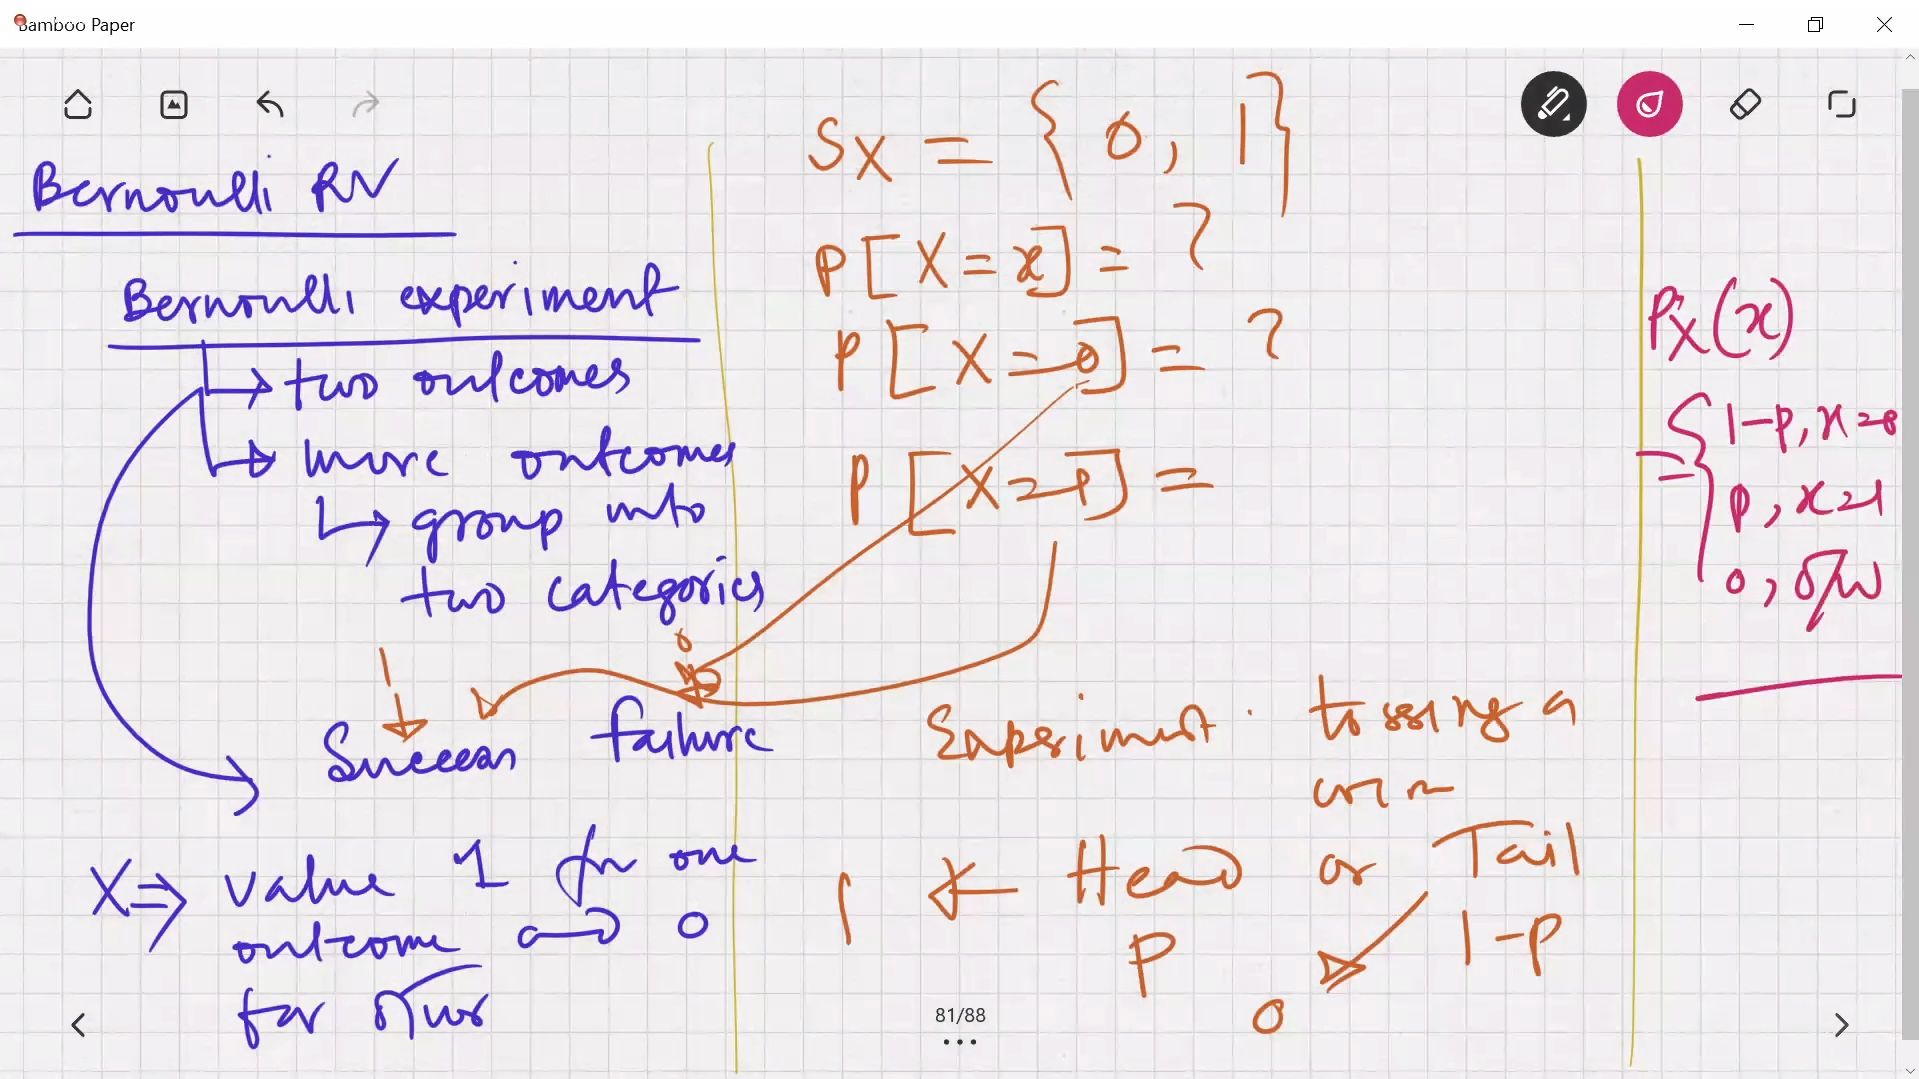 Bamboo Paper
Bernoulli RV
Bernoulli experiment
→ two outcomes
→ more outcomes
↳ group into
two categories
1 0
Success failure
X ⇒ value 1 for one
outcome and 0
for other
S_X = {0, 1}
P[X = x] = ?
P[X = 0] = ?
P[X = 1] =
Experiment. tossing a
coin
1 ← Head or Tail
P 1-P
0
P_X(x)
= { 1-p, x=0
p, x=1
0, o/w
81/88